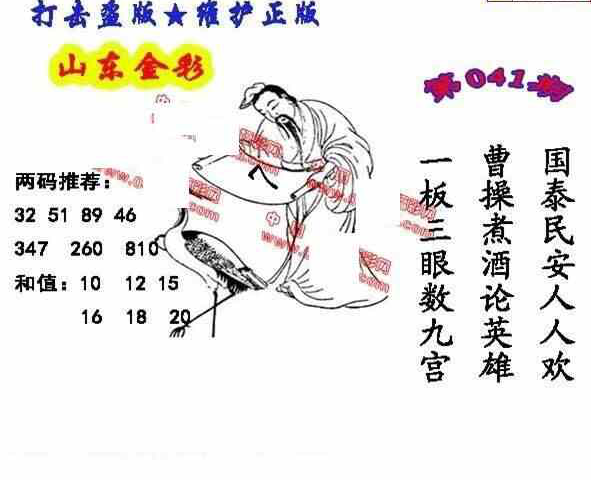 打击盗版★维护正版
山东金彩
第041期
两码推荐：
32 51 89 46
347 260 810
和值：10 12 15
16 18 20
国泰民安人人欢
曹操煮酒论英雄
一板三眼数九宫